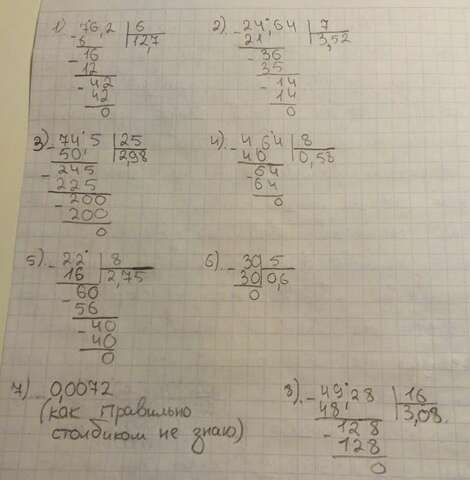 1) 76,2 | 6
- 6 12,7
16
- 12
42
- 42
0
2) 24,64 | 7
- 21 3,52
36
- 35
14
- 14
0
3) 74 5 | 25
- 50 2,98
245
- 225
200
- 200
0
4) 4,64 | 8
- 40 0,58
64
- 64
0
5) 22 | 8
- 16 2,75
60
- 56
40
- 40
0
6) 30 | 5
- 30 0,6
0
7) 0,0072
(как правильно
столбиком не знаю)
8) 49,28 | 16
- 48 3,08
128
- 128
0